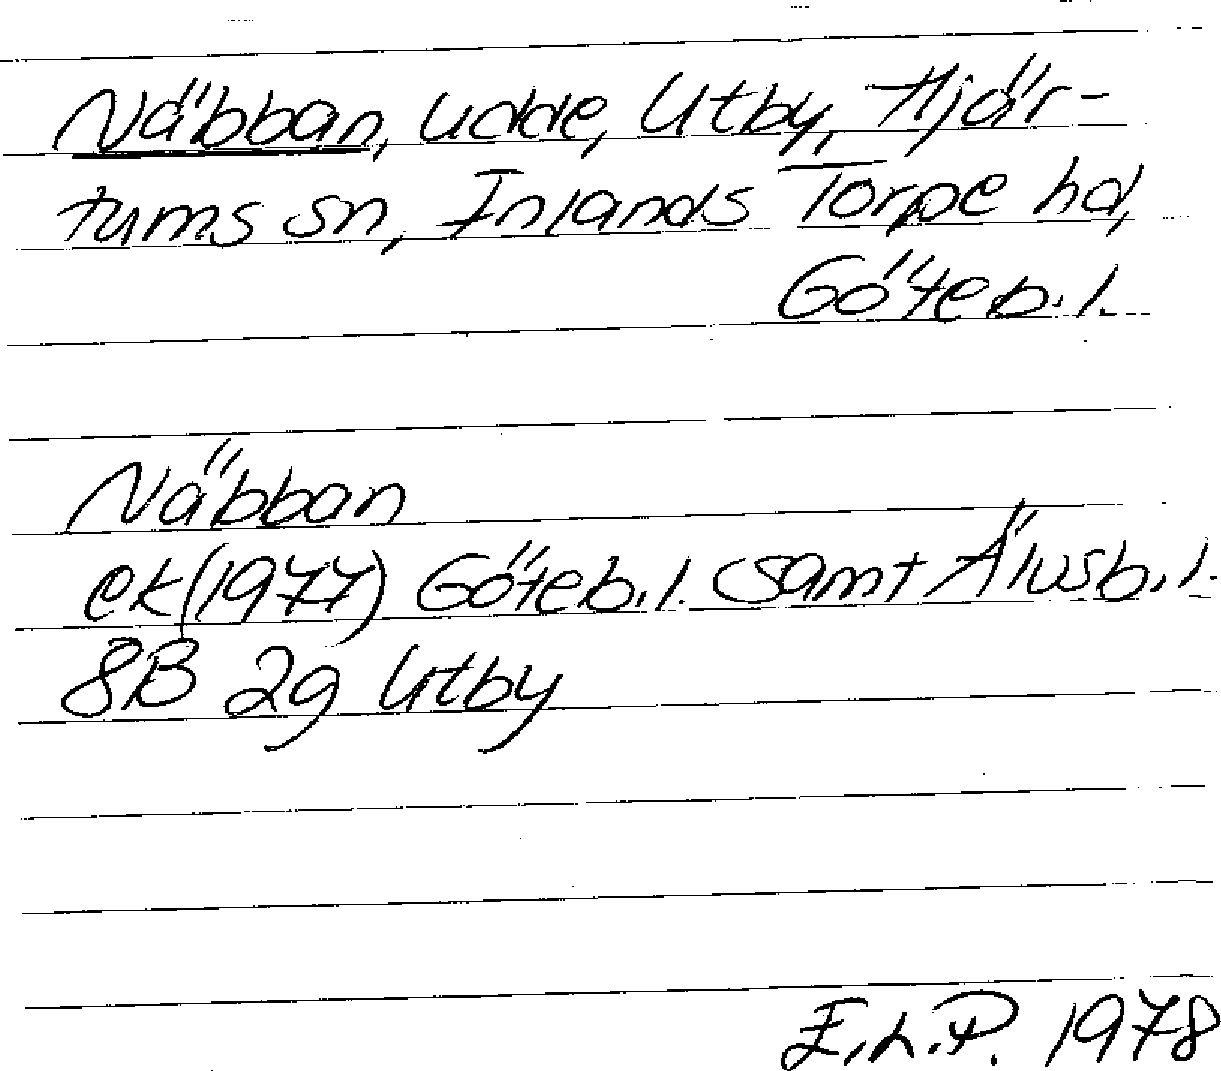 Näbban, udde, Utby, Hjär-
tums sn, Inlands Torpe hd,
Göteb. l.
Näbban
ek (1977) Göteb. l. samt Älvsb. l.
8B 2g Utby
E.L.P. 1978